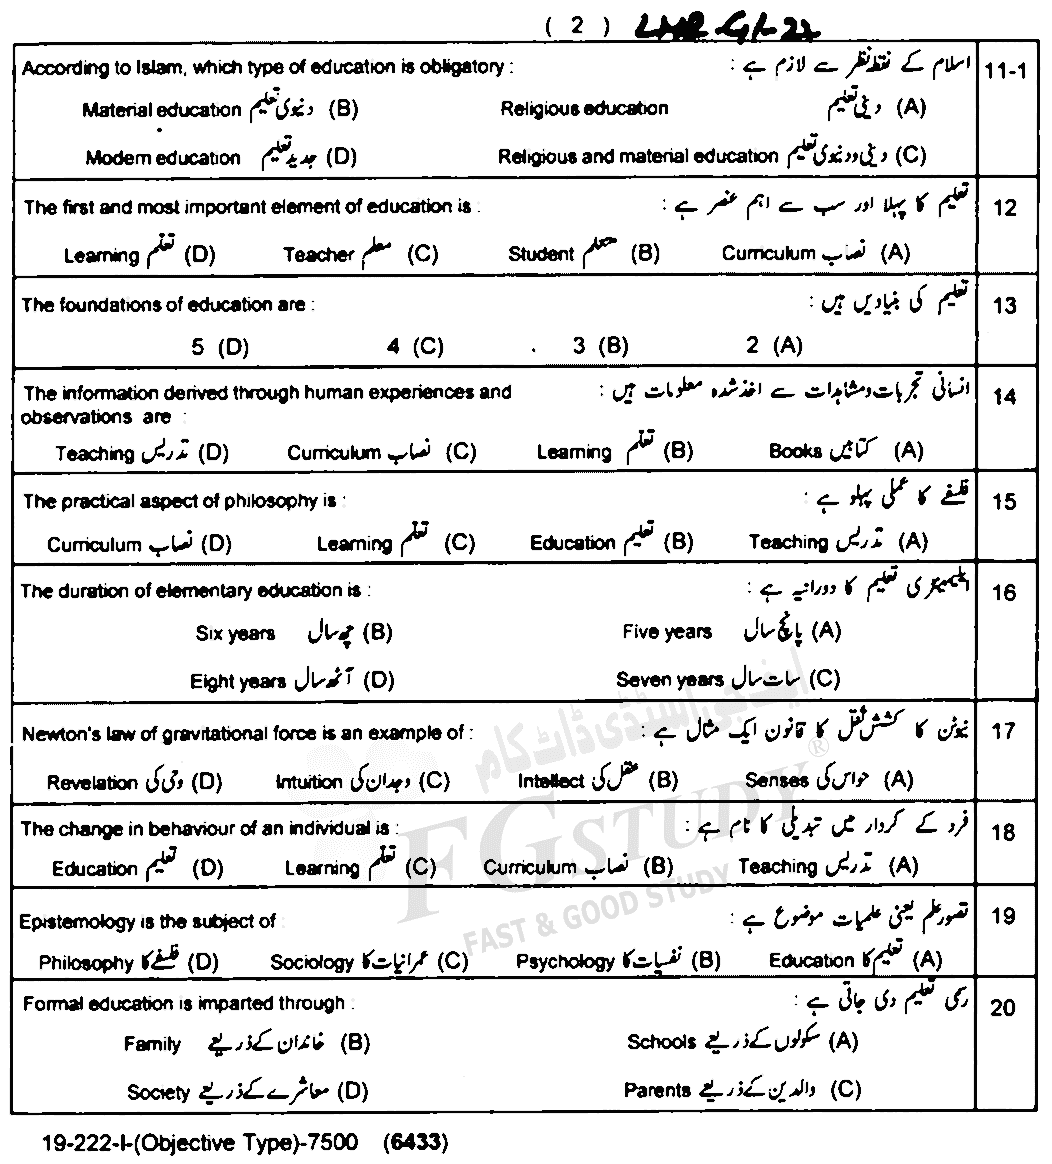 ( 2 ) LHR-G1-22
According to Islam, which type of education is obligatory : اسلام کے نقطہ نظر سے لازم ہے : 11-1
Material education دنیوی تعلیم (B) Religious education دینی تعلیم (A)
Modern education جدید تعلیم (D) Religious and material education دینی و دنیوی تعلیم (C)
The first and most important element of education is : تعلیم کا پہلا اور سب سے اہم عنصر ہے : 12
Learning تعلم (D) Teacher معلم (C) Student متعلم (B) Curriculum نصاب (A)
The foundations of education are : تعلیم کی بنیادیں ہیں : 13
5 (D) 4 (C) 3 (B) 2 (A)
The information derived through human experiences and انسانی تجربات ومشاہدات سے اخذ شدہ معلومات ہیں : 14
observations are :
Teaching تدریس (D) Curriculum نصاب (C) Learning تعلم (B) Books کتابیں (A)
The practical aspect of philosophy is : فلسفے کا عملی پہلو ہے : 15
Curriculum نصاب (D) Learning تعلم (C) Education تعلیم (B) Teaching تدریس (A)
The duration of elementary education is : ایلیمینٹری تعلیم کا دورانیہ ہے : 16
Six years چھ سال (B) Five years پانچ سال (A)
Eight years آٹھ سال (D) Seven years سات سال (C)
Newton's law of gravitational force is an example of : نیوٹن کا کشش ثقل کا قانون ایک مثال ہے : 17
Revelation وحی کی (D) Intuition وجدان کی (C) Intellect عقل کی (B) Senses حواس کی (A)
The change in behaviour of an individual is : فرد کے کردار میں تبدیلی کا نام ہے : 18
Education تعلیم (D) Learning تعلم (C) Curriculum نصاب (B) Teaching تدریس (A)
Epistemology is the subject of : تصور علم یعنی علمیات موضوع ہے : 19
Philosophy فلسفے کا (D) Sociology عمرانیات کا (C) Psychology نفسیات کا (B) Education تعلیم کا (A)
Formal education is imparted through : رسمی تعلیم دی جاتی ہے : 20
Family خاندان کے ذریعے (B) Schools سکولوں کے ذریعے (A)
Society معاشرے کے ذریعے (D) Parents والدین کے ذریعے (C)
19-222-I-(Objective Type)-7500 (6433)
ایف جی اسٹڈی ڈاٹ کام
FG STUDY ®
FAST & GOOD STUDY